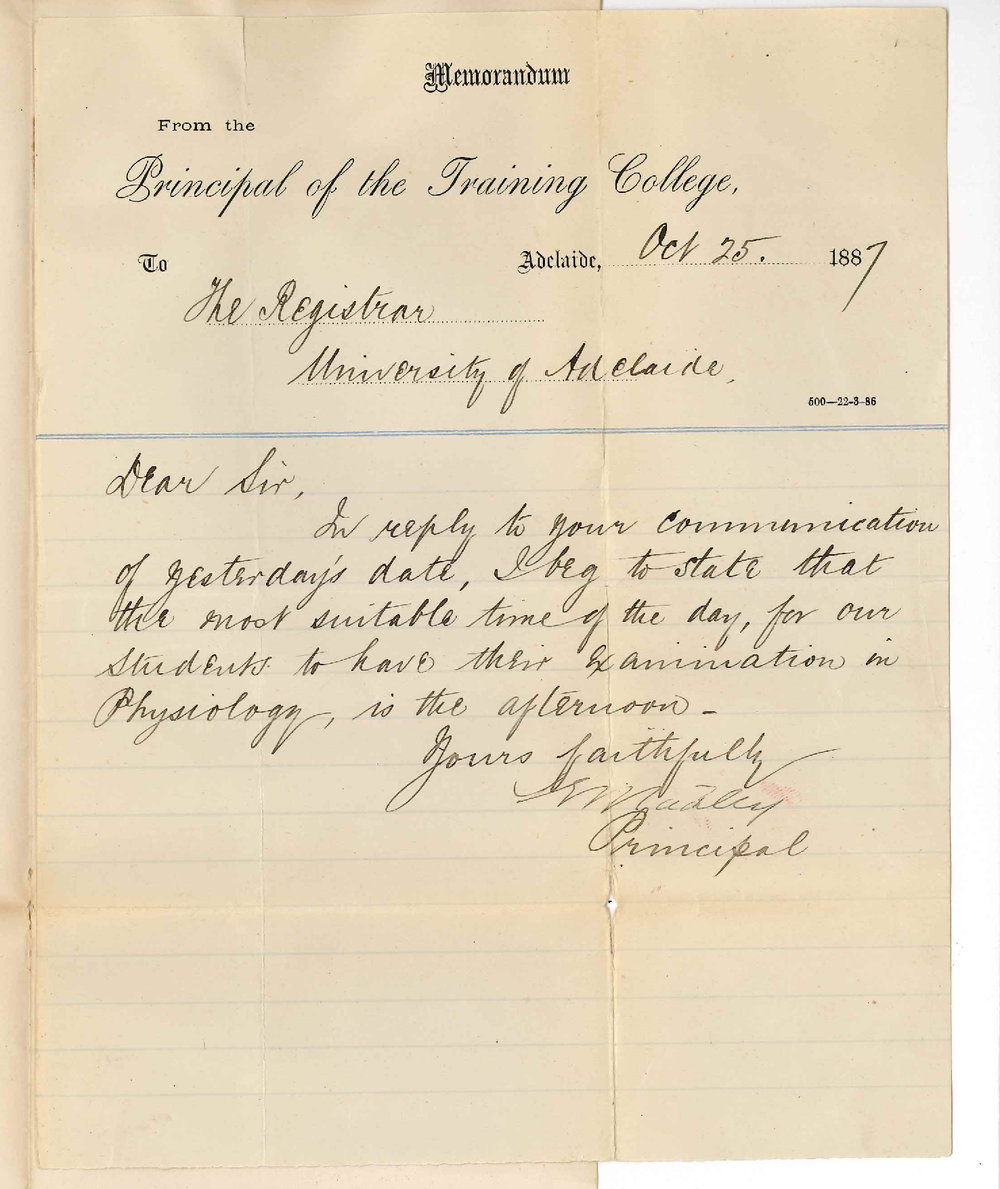 Memorandum
From the
Principal of the Training College,
To Adelaide, Oct 25. 1887
The Registrar
University of Adelaide,
500—22-3-86
Dear Sir,
In reply to your communication
of yesterday's date, I beg to state that
the most suitable time of the day, for our
students to have their examination in
Physiology, is the afternoon -
Yours faithfully
Principal